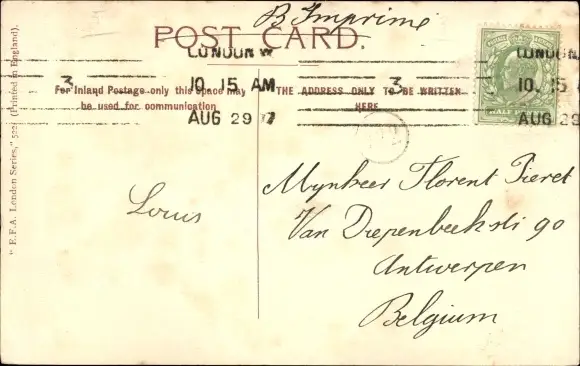 B Imprimé
POST CARD.
LONDON W
3
10. 15 AM
AUG 29 7
3
LONDON
10. 15
AUG 29
For Inland Postage only this space may
be used for communication
THE ADDRESS ONLY TO BE WRITTEN
HERE
HALF
"E.F.A. London Series," 522. (Printed in England).
Louis
Mynheer Florent Pieret
Van Diepenbeekstr 90
Antwerpen
Belgium